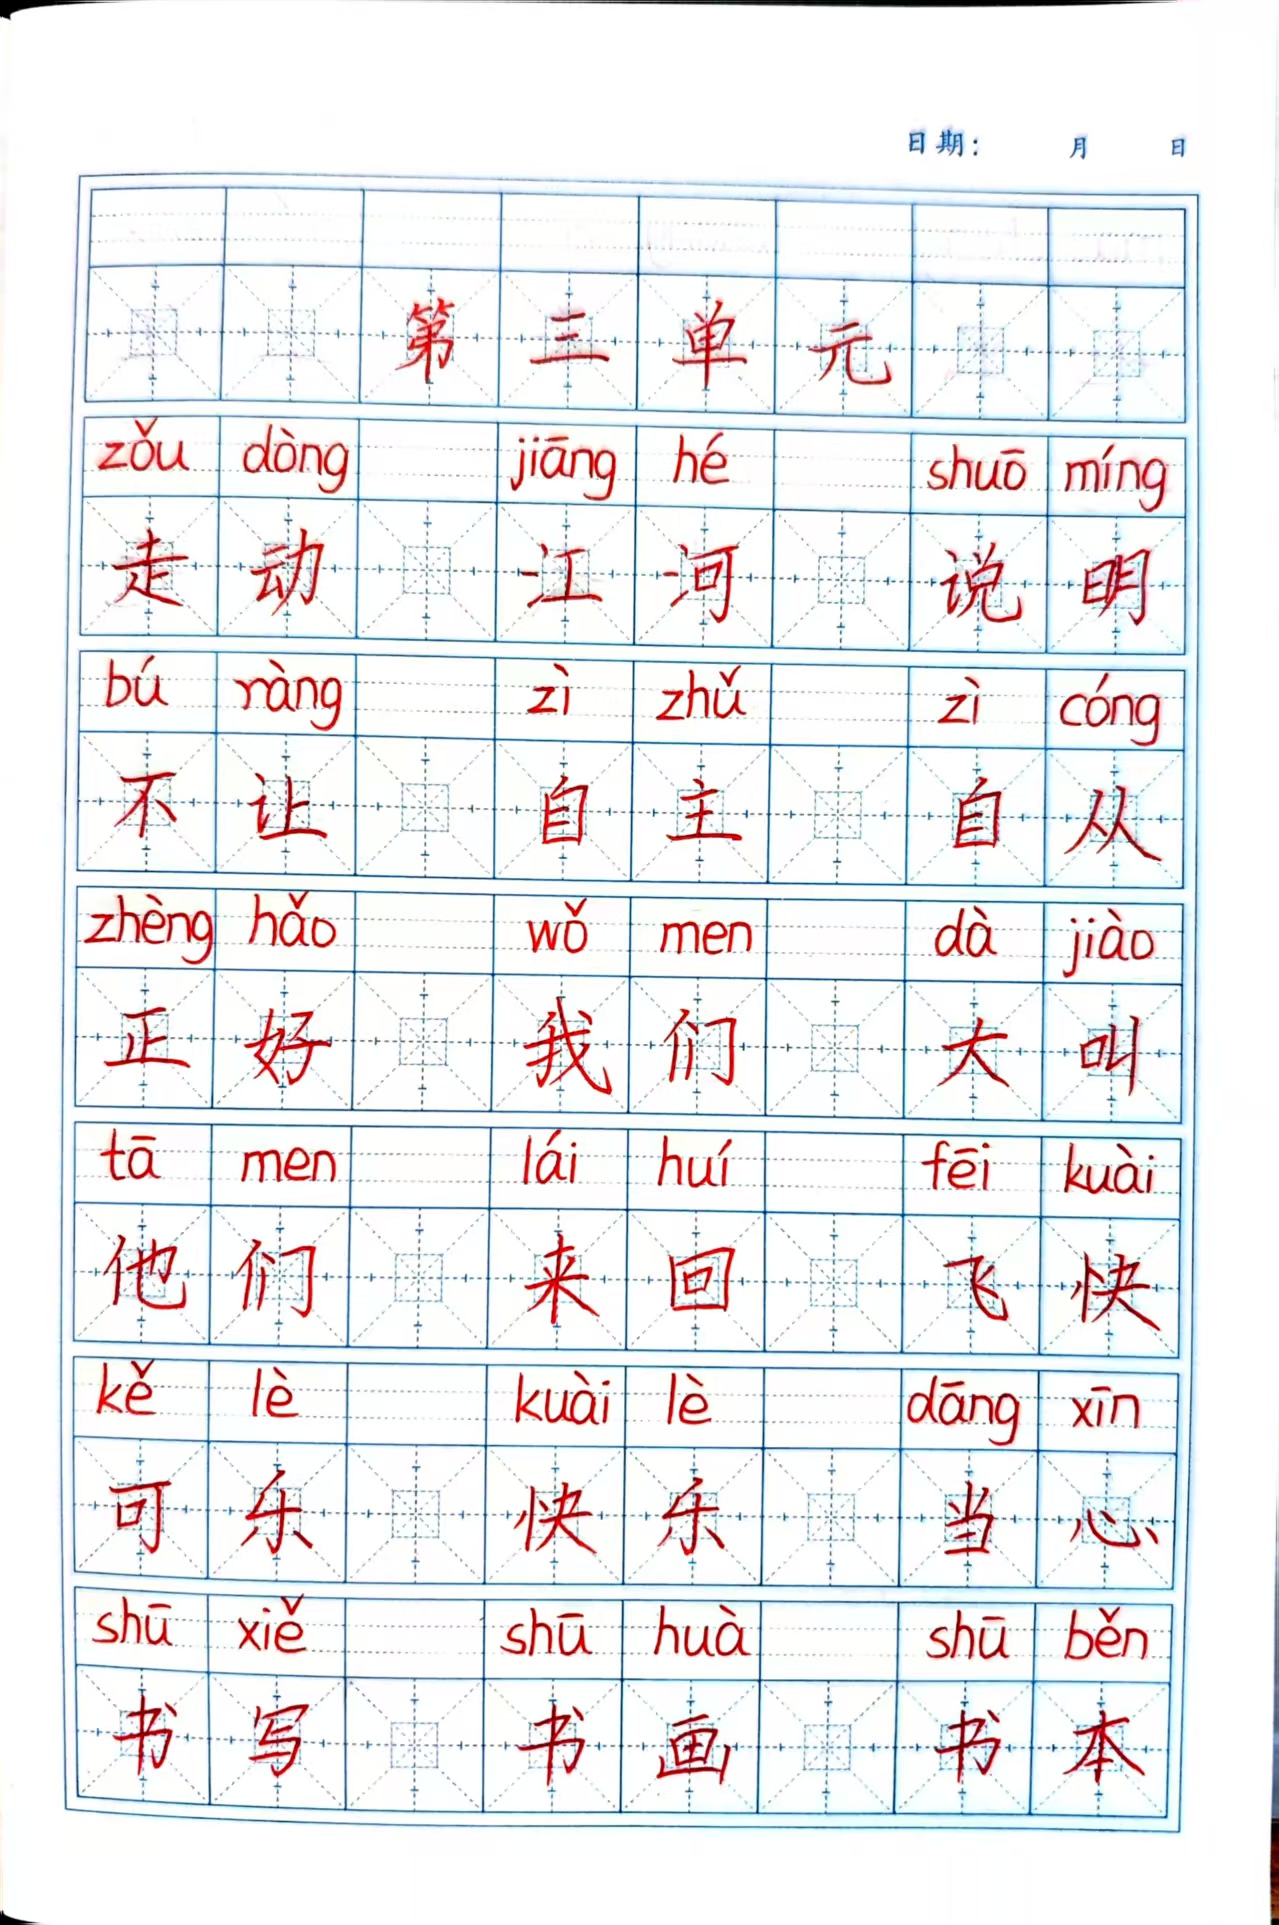 日期： 月 日
第三单元
zǒu dòng jiāng hé shuō míng
走动 江河 说明
bú ràng zì zhǔ zì cóng
不让 自主 自从
zhèng hǎo wǒ men dà jiào
正好 我们 大叫
tā men lái huí fēi kuài
他们 来回 飞快
kě lè kuài lè dāng xīn
可乐 快乐 当心
shū xiě shū huà shū běn
书写 书画 书本